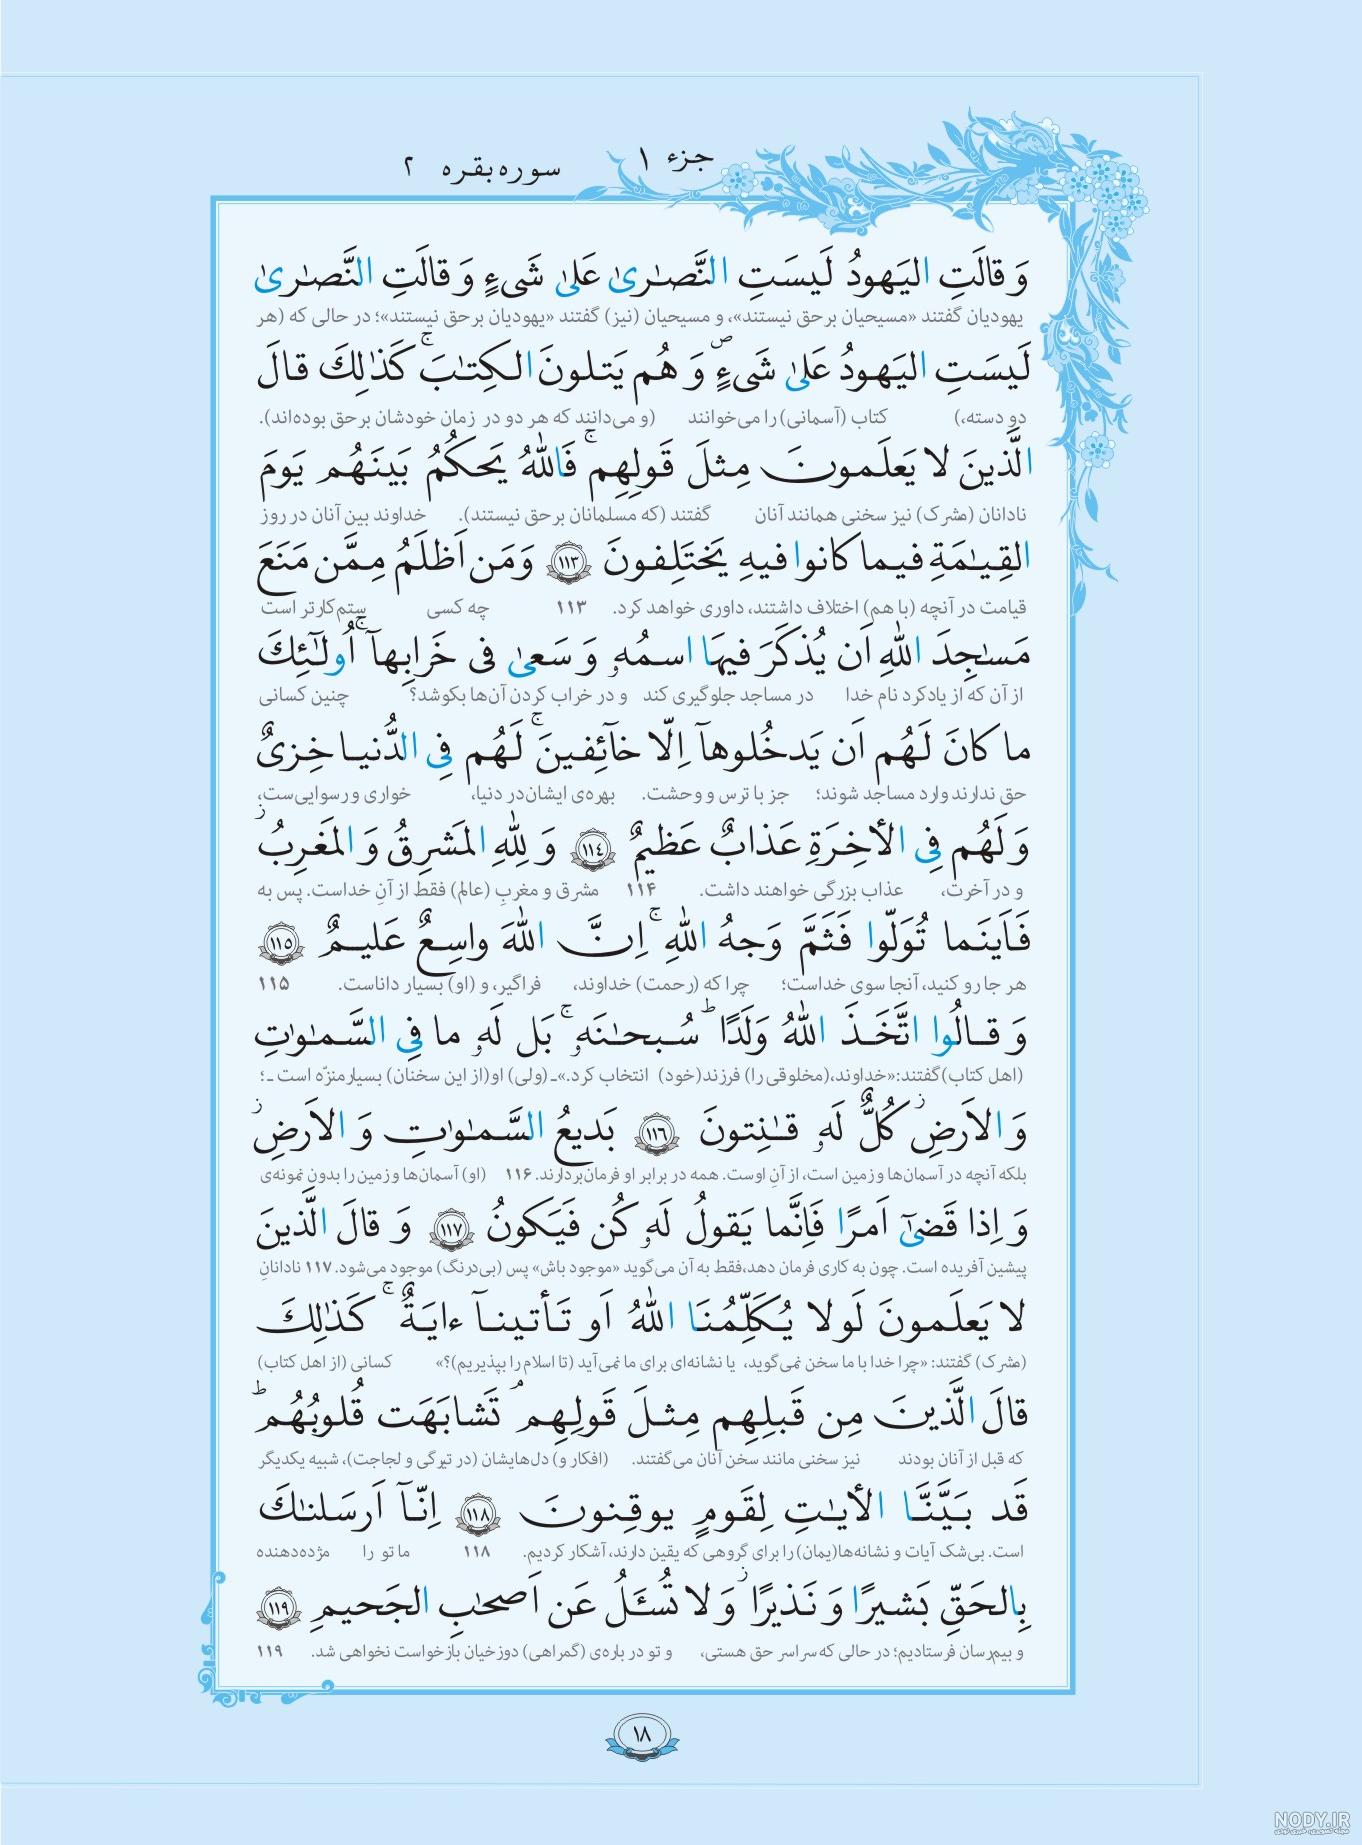 جزء ۱
سوره بقره ۲
وَ قالَتِ الیَهودُ لَیسَتِ النَّصٰرىٰ عَلىٰ شَىءٍ وَ قالَتِ النَّصٰرىٰ
یهودیان گفتند «مسیحیان بر حق نیستند»، و مسیحیان (نیز) گفتند «یهودیان بر حق نیستند»؛ در حالی که (هر
لَیسَتِ الیَهودُ عَلىٰ شَىءٍ ۖ وَ هُم یَتلونَ الکِتٰبَ ۚ کَذٰلِكَ قالَ
دو دسته،) کتاب (آسمانی) را می‌خوانند (و می‌دانند که هر دو در زمان خودشان بر حق بوده‌اند).
الَّذینَ لا یَعلَمونَ مِثلَ قَولِهِم ۚ فَاللّٰهُ یَحکُمُ بَینَهُم یَومَ
نادانان (مشرک) نیز سخنی همانند آنان گفتند (که مسلمانان بر حق نیستند). خداوند بین آنان در روز
القِیٰمَةِ فیما کانوا فیهِ یَختَلِفونَ ﴿١١٣﴾ وَ مَن اَظلَمُ مِمَّن مَنَعَ
قیامت در آنچه (با هم) اختلاف داشتند، داوری خواهد کرد. ۱۱۳ چه کسی ستم‌کارتر است
مَسٰجِدَ اللّٰهِ اَن یُذکَرَ فیهَا اسمُهٗ وَ سَعىٰ فى خَرابِهآ ۚ اُولٰٓئِكَ
از آن که از یادکرد نام خدا در مساجد جلوگیری کند و در خراب کردن آن‌ها بکوشد؟ چنین کسانی
ما کانَ لَهُم اَن یَدخُلوهآ اِلّا خآئِفینَ ۚ لَهُم فِى الدُّنیا خِزىٌ
حق ندارند وارد مساجد شوند؛ جز با ترس و وحشت. بهره‌ی ایشان در دنیا، خواری و رسوایی‌ست،
وَ لَهُم فِى الأخِرَةِ عَذابٌ عَظیمٌ ﴿١١٤﴾ وَ لِلّٰهِ المَشرِقُ وَ المَغرِبُ ز
و در آخرت، عذاب بزرگی خواهند داشت. ۱۱۴ مشرق و مغربِ (عالم) فقط از آنِ خداست. پس به
فَاَینَما تُوَلّوا فَثَمَّ وَجهُ اللّٰهِ ۚ اِنَّ اللّٰهَ واسِعٌ عَلیمٌ ﴿١١٥﴾
هر جا رو کنید، آنجا سوی خداست؛ چرا که (رحمت) خداوند، فراگیر، و (او) بسیار داناست. ۱۱۵
وَ قالُوا اتَّخَذَ اللّٰهُ وَلَدًا ؕ سُبحٰنَهٗ ۚ بَل لَهٗ ما فِى السَّمٰوٰتِ
(اهل کتاب) گفتند: «خداوند، (مخلوقی را) فرزند (خود) انتخاب کرد.» ـ (ولی) او (از این سخنان) بسیار منزّه است ـ؛
وَ الاَرضِ ز کُلٌّ لَهٗ قٰنِتونَ ﴿١١٦﴾ بَدیعُ السَّمٰوٰتِ وَ الاَرضِ ز
بلکه آنچه در آسمان‌ها و زمین است، از آنِ اوست. همه در برابر او فرمان‌بردارند. ۱۱۶ (او) آسمان‌ها و زمین را بدون نمونه‌ی
وَ اِذا قَضىٰٓ اَمرًا فَاِنَّما یَقولُ لَهٗ کُن فَیَکونُ ﴿١١٧﴾ وَ قالَ الَّذینَ
پیشین آفریده است. چون به کاری فرمان دهد، فقط به آن می‌گوید «موجود باش» پس (بی‌درنگ) موجود می‌شود. ۱۱۷ نادانانِ
لا یَعلَمونَ لَولا یُکَلِّمُنَا اللّٰهُ اَو تَأتینآ ءایَةٌ ۚ کَذٰلِكَ
(مشرک) گفتند: «چرا خدا با ما سخن نمی‌گوید، یا نشانه‌ای برای ما نمی‌آید (تا اسلام را بپذیریم)؟» کسانی (از اهل کتاب)
قالَ الَّذینَ مِن قَبلِهِم مِثلَ قَولِهِم ۘ تَشابَهَت قُلوبُهُم ؕ
که قبل از آنان بودند نیز سخنی مانند سخن آنان می‌گفتند. (افکار و) دل‌هایشان (در تیرگی و لجاجت)، شبیه یکدیگر
قَد بَیَّنَّا الأیٰتِ لِقَومٍ یوقِنونَ ﴿١١٨﴾ اِنّآ اَرسَلنٰكَ
است. بی‌شک آیات و نشانه‌ها(یمان) را برای گروهی که یقین دارند، آشکار کردیم. ۱۱۸ ما تو را مژده‌دهنده
بِالحَقِّ بَشیرًا وَ نَذیرًا ز وَ لا تُسـَٔلُ عَن اَصحٰبِ الجَحیمِ ﴿١١٩﴾
و بیم‌رسان فرستادیم؛ در حالی که سراسر حق هستی، و تو درباره‌ی (گمراهی) دوزخیان بازخواست نخواهی شد. ۱۱۹
۱۸
NODY.IR